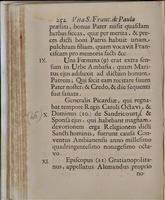 252 Vita S. Franc. de Paula
præfata, bonus Pater misit quasdam
herbas siccas, quæ per merita, & pre-
ces dicti boni Patris habuit unam
pulchram filiam, quam vocavit Franc-
iscam pro memoria facti &c.
IX. Una Fœmina (9) erat extra sen-
sum in Urbe Ambasia, quam Mari-
tus ejus adduxit ad dictum bonum
Patrem: Qui fecit eam recitare suum
Pater noster, & Credo, & die sequenti
fuit sanata.
X. Generalis Picardiæ, qui regna-
bat tempore Regis Caroli Octavi, &
Dominus (10.) de Sandricourt, &
Sponsa ejus, qui habebant magnam
devotionem erga Religionem dicti
Sancti hominis, fuerunt causa Con-
ventus Ambianensis anno millesimo
quadringentesimo nonagesimo octa-
vo.
XI. Episcopus (11) Gratianopolita-
nus, appellatus Alemandus propriò
no-